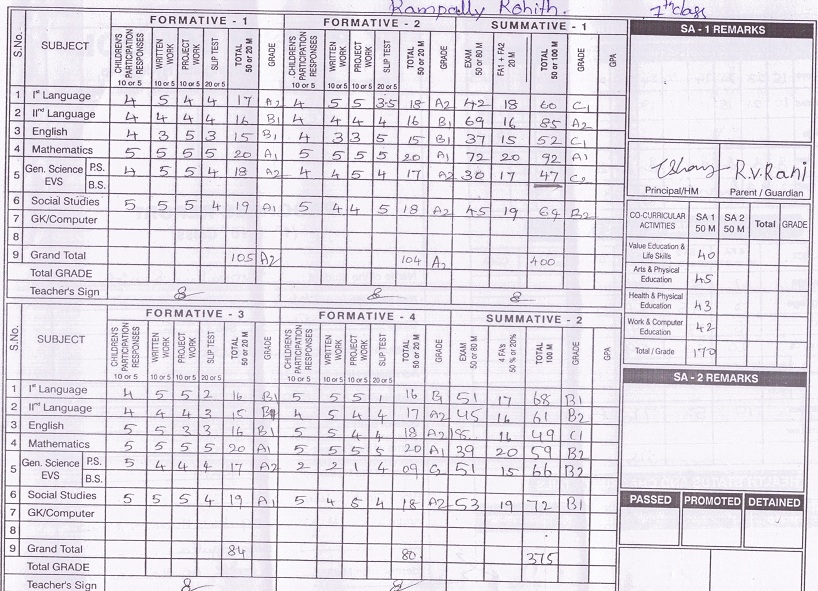 Rampally Rohith. 7th class
FORMATIVE - 1 FORMATIVE - 2 SUMMATIVE - 1
S.No. SUBJECT CHILDREN'S PARTICIPATION RESPONSES WRITTEN WORK PROJECT WORK SLIP TEST TOTAL 50 or 20 M GRADE CHILDREN'S PARTICIPATION RESPONSES WRITTEN WORK PROJECT WORK SLIP TEST TOTAL 50 or 20 M GRADE EXAM 50 or 80 M FA1 + FA2 20 M TOTAL 50 or 100 M GRADE GPA
10 or 5 10 or 5 10 or 5 20 or 5 10 or 5 10 or 5 10 or 5 20 or 5
1 Ist Language 4 5 4 4 17 A2 4 5 5 3.5 18 A2 42 18 60 C1
2 IInd Language 4 4 4 4 16 B1 4 4 4 4 16 B1 69 16 85 A2
3 English 4 3 5 3 15 B1 4 3 3 5 15 B1 37 15 52 C1
4 Mathematics 5 5 5 5 20 A1 5 5 5 5 20 A1 72 20 92 A1
5 Gen. Science EVS P.S. 4 5 5 4 18 A2 4 4 5 4 17 A2 30 17 47 C2
B.S.
6 Social Studies 5 5 5 4 19 A1 5 4 4 5 18 A2 45 19 64 B2
7 GK/Computer
8
9 Grand Total 105 A2 104 A2 400
Total GRADE
Teacher's Sign
SA - 1 REMARKS
R.V.Rani
Principal/HM Parent / Guardian
CO-CURRICULAR ACTIVITIES SA 1 50 M SA 2 50 M Total GRADE
Value Education & Life Skills 40
Arts & Physical Education 45
Health & Physical Education 43
Work & Computer Education 42
Total / Grade 170
FORMATIVE - 3 FORMATIVE - 4 SUMMATIVE - 2
S.No. SUBJECT CHILDREN'S PARTICIPATION RESPONSES WRITTEN WORK PROJECT WORK SLIP TEST TOTAL 50 or 20 M GRADE CHILDREN'S PARTICIPATION RESPONSES WRITTEN WORK PROJECT WORK SLIP TEST TOTAL 50 or 20 M GRADE EXAM 50 or 80 M 4 FA's 50 % or 20% TOTAL 100 M GRADE GPA
10 or 5 10 or 5 10 or 5 20 or 5 10 or 5 10 or 5 10 or 5 20 or 5
1 Ist Language 4 5 5 2 16 B1 5 5 5 1 16 51 17 68 B1
2 IInd Language 4 4 4 3 15 4 5 4 4 17 A2 45 16 61 B2
3 English 5 5 3 3 16 B1 5 5 4 4 18 A2 16 49 C1
4 Mathematics 5 5 5 5 20 A1 5 5 5 5 20 A1 39 20 59 B2
5 Gen. Science EVS P.S. 5 4 4 4 17 A2 2 2 1 4 09 51 15 66 B2
B.S.
6 Social Studies 5 5 5 4 19 A1 5 4 5 4 18 A2 53 19 72 B1
7 GK/Computer
8
9 Grand Total 84 80 375
Total GRADE
Teacher's Sign
SA - 2 REMARKS
PASSED PROMOTED DETAINED